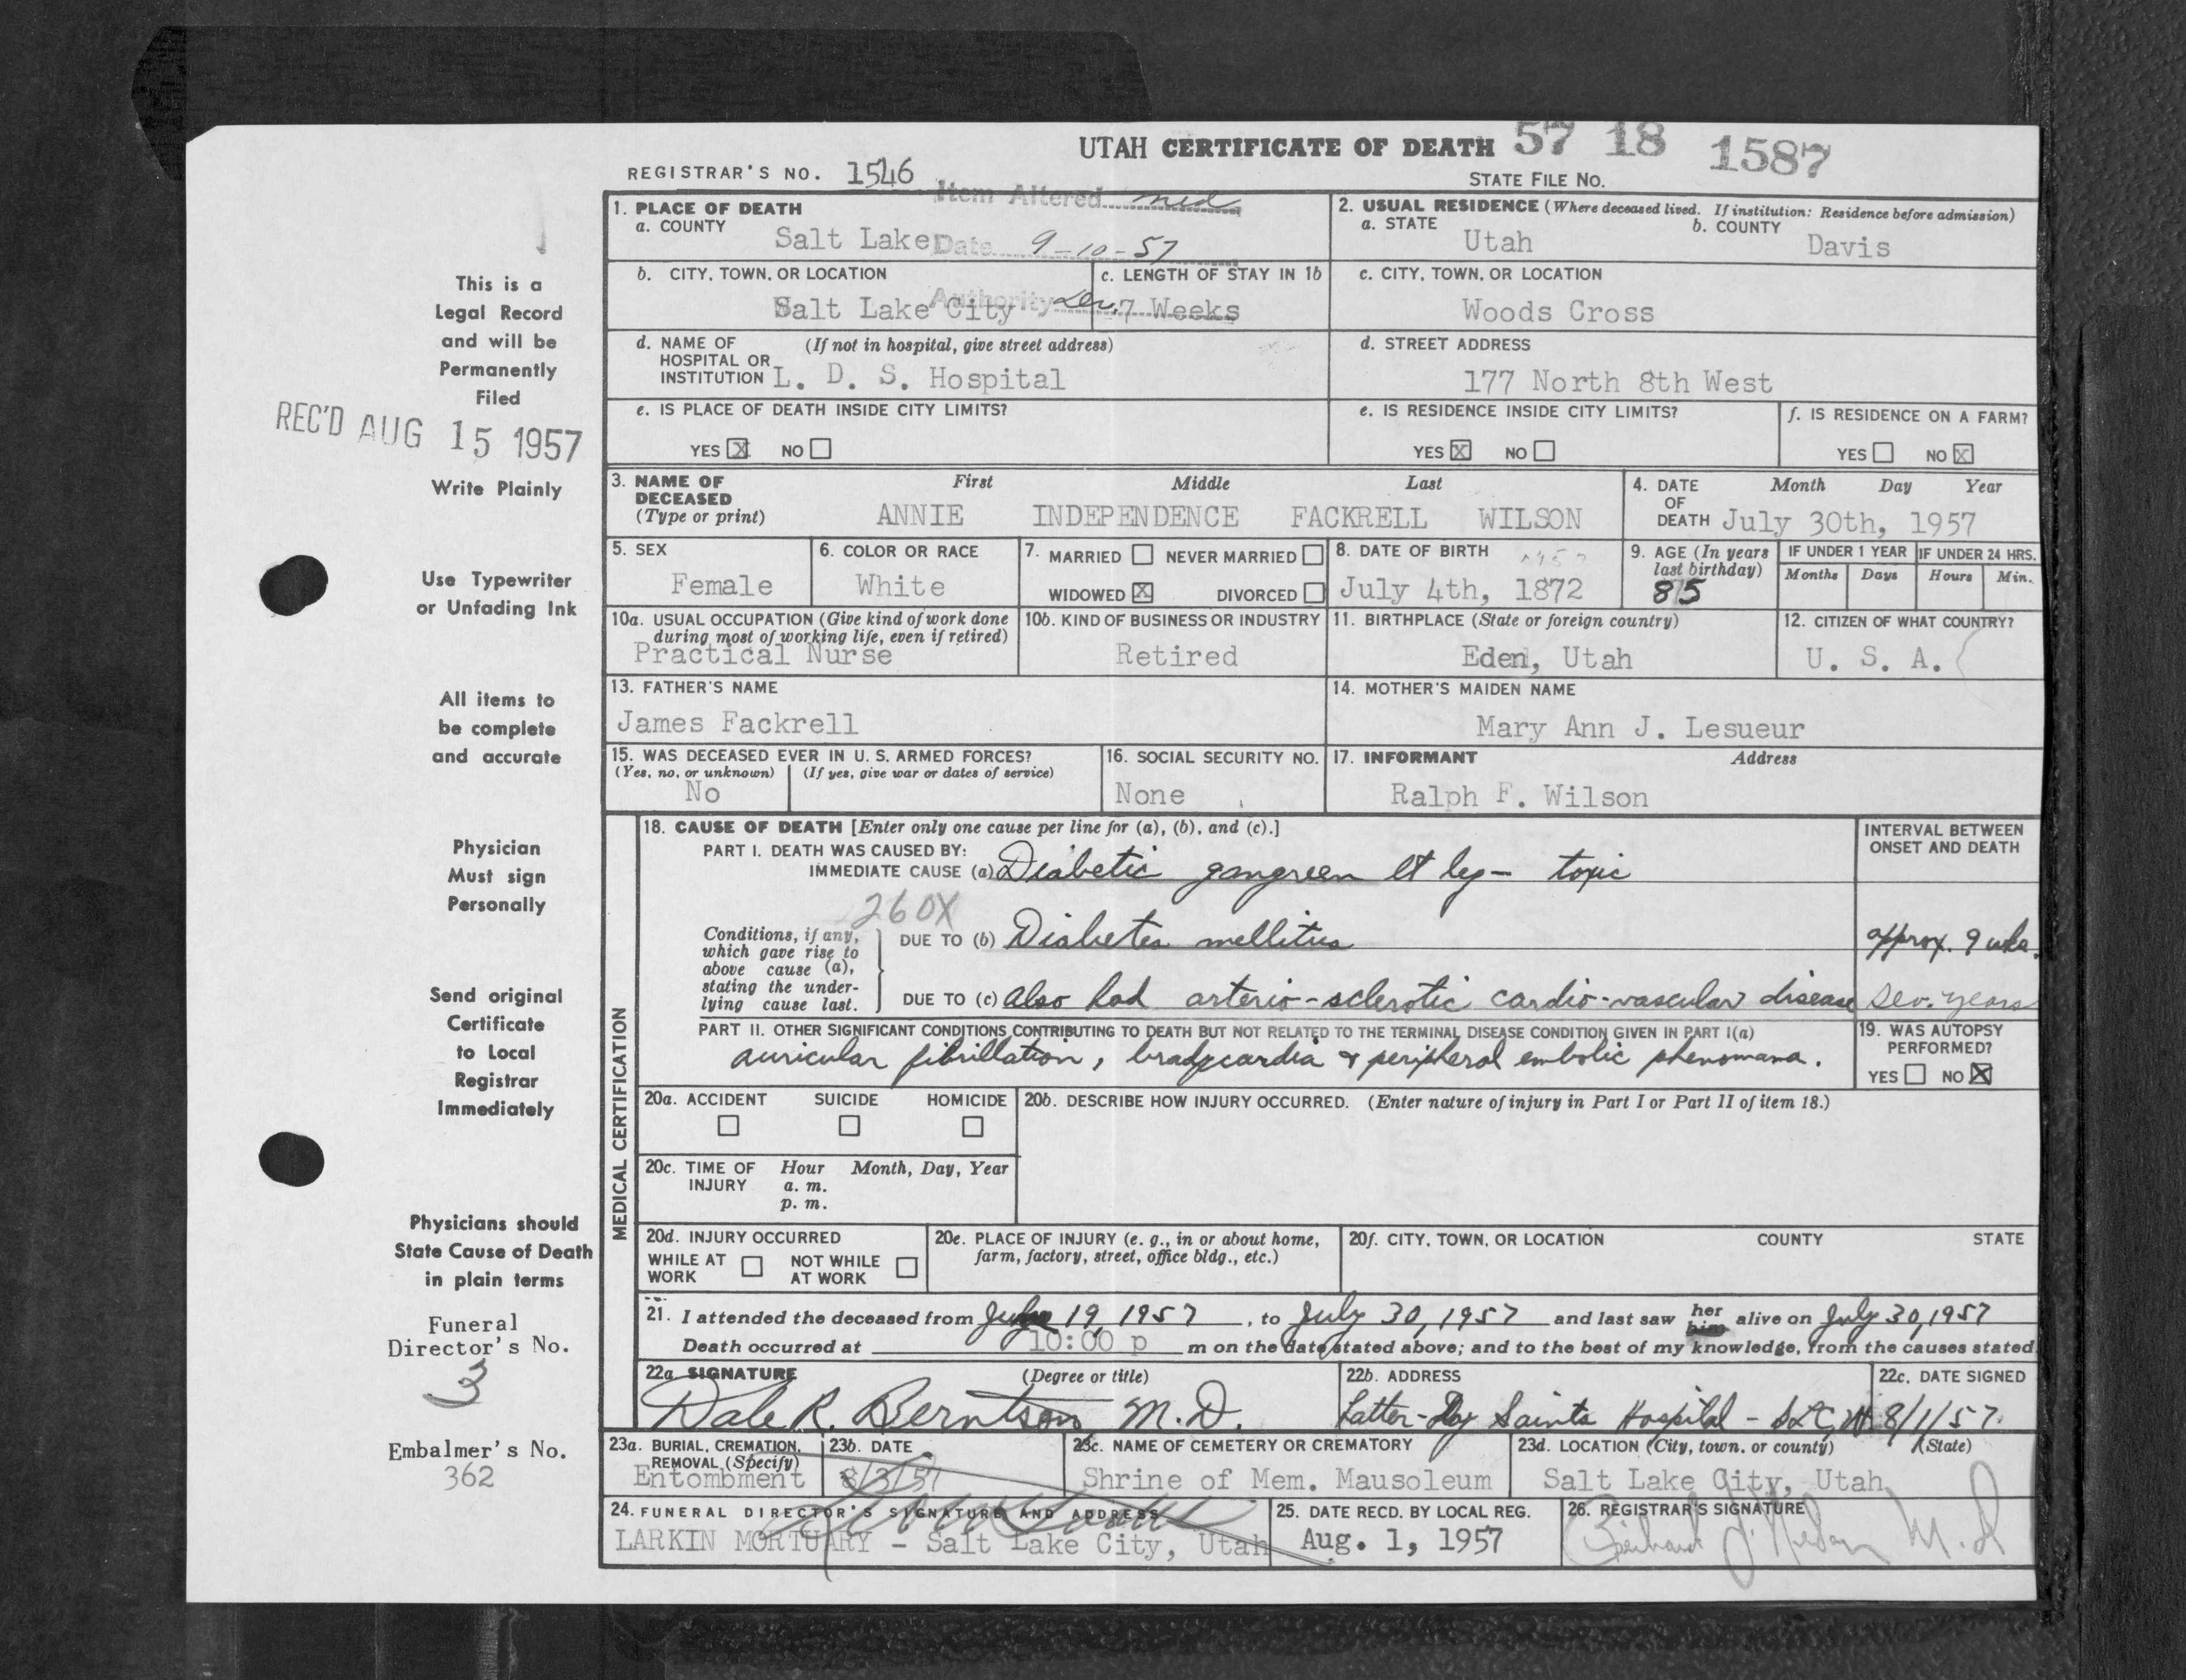 UTAH CERTIFICATE OF DEATH 57 18 1587
REGISTRAR'S NO. 1546
STATE FILE NO.
Item Altered med
Date 9-10-57
Authority
1. PLACE OF DEATH
a. COUNTY
Salt Lake
2. USUAL RESIDENCE (Where deceased lived. If institution: Residence before admission)
a. STATE
Utah
b. COUNTY
Davis
b. CITY, TOWN, OR LOCATION
Salt Lake City
c. LENGTH OF STAY IN 1b
7 Weeks
c. CITY, TOWN, OR LOCATION
Woods Cross
d. NAME OF HOSPITAL OR INSTITUTION
(If not in hospital, give street address)
L. D. S. Hospital
d. STREET ADDRESS
177 North 8th West
e. IS PLACE OF DEATH INSIDE CITY LIMITS?
YES X NO
e. IS RESIDENCE INSIDE CITY LIMITS?
YES X NO
f. IS RESIDENCE ON A FARM?
YES NO X
3. NAME OF DECEASED
(Type or print)
First Middle Last
ANNIE INDEPENDENCE FACKRELL WILSON
4. DATE OF DEATH
Month Day Year
July 30th, 1957
5. SEX
Female
6. COLOR OR RACE
White
7. MARRIED NEVER MARRIED
WIDOWED X DIVORCED
8. DATE OF BIRTH
July 4th, 1872
9. AGE (In years last birthday)
85
IF UNDER 1 YEAR
Months Days
IF UNDER 24 HRS.
Hours Min.
10a. USUAL OCCUPATION (Give kind of work done during most of working life, even if retired)
Practical Nurse
10b. KIND OF BUSINESS OR INDUSTRY
Retired
11. BIRTHPLACE (State or foreign country)
Eden, Utah
12. CITIZEN OF WHAT COUNTRY?
U. S. A.
13. FATHER'S NAME
James Fackrell
14. MOTHER'S MAIDEN NAME
Mary Ann J. Lesueur
15. WAS DECEASED EVER IN U. S. ARMED FORCES?
(Yes, no, or unknown) (If yes, give war or dates of service)
No
16. SOCIAL SECURITY NO.
None
17. INFORMANT Address
Ralph F. Wilson
MEDICAL CERTIFICATION
18. CAUSE OF DEATH [Enter only one cause per line for (a), (b), and (c).]
INTERVAL BETWEEN ONSET AND DEATH
PART I. DEATH WAS CAUSED BY:
IMMEDIATE CAUSE (a) Diabetic gangreen lt leg - toxic
260X
Conditions, if any, which gave rise to above cause (a), stating the underlying cause last.
DUE TO (b) Diabetes mellitus approx. 9 wks.
DUE TO (c) also had arterio-sclerotic cardio-vascular disease sev. years
PART II. OTHER SIGNIFICANT CONDITIONS CONTRIBUTING TO DEATH BUT NOT RELATED TO THE TERMINAL DISEASE CONDITION GIVEN IN PART I(a)
auricular fibrillation, bradycardia & peripheral embolic phenomana.
19. WAS AUTOPSY PERFORMED?
YES NO X
20a. ACCIDENT SUICIDE HOMICIDE
20b. DESCRIBE HOW INJURY OCCURRED. (Enter nature of injury in Part I or Part II of item 18.)
20c. TIME OF INJURY Hour Month, Day, Year
a. m.
p. m.
20d. INJURY OCCURRED
WHILE AT WORK NOT WHILE AT WORK
20e. PLACE OF INJURY (e. g., in or about home, farm, factory, street, office bldg., etc.)
20f. CITY, TOWN, OR LOCATION COUNTY STATE
21. I attended the deceased from 19, 1957, to July 30, 1957 and last saw her him alive on July 30, 1957
Death occurred at 10:00 p m on the date stated above; and to the best of my knowledge, from the causes stated
22a. SIGNATURE (Degree or title)
Dale R. Berntson M.D.
22b. ADDRESS
Latter-Day Saints Hospital - SLC, Ut
22c. DATE SIGNED
8/1/57.
23a. BURIAL, CREMATION, REMOVAL (Specify)
Entombment
23b. DATE
8/3/57
23c. NAME OF CEMETERY OR CREMATORY
Shrine of Mem. Mausoleum
23d. LOCATION (City, town, or county) (State)
Salt Lake City, Utah
24. FUNERAL DIRECTOR'S SIGNATURE AND ADDRESS
LARKIN MORTUARY - Salt Lake City, Utah
25. DATE RECD. BY LOCAL REG.
Aug. 1, 1957
26. REGISTRAR'S SIGNATURE
M.D
This is a
Legal Record
and will be
Permanently
Filed
REC'D AUG 15 1957
Write Plainly
Use Typewriter
or Unfading Ink
All items to
be complete
and accurate
Physician
Must sign
Personally
Send original
Certificate
to Local
Registrar
Immediately
Physicians should
State Cause of Death
in plain terms
Funeral
Director's No.
3
Embalmer's No.
362